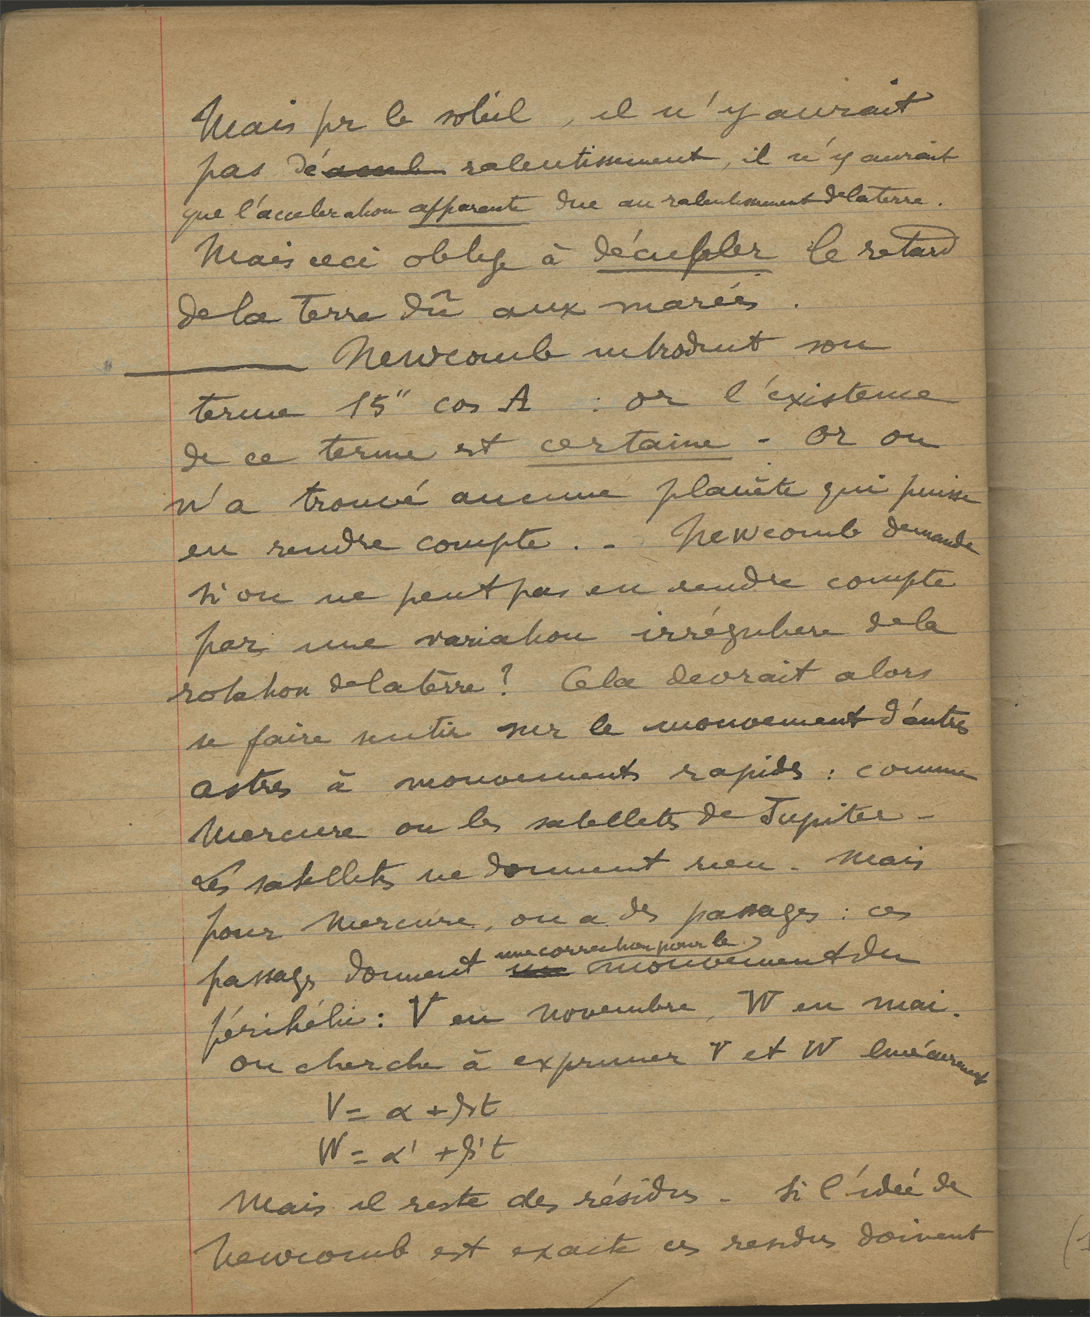 Mais pr le soleil, il n'y aurait
pas de ralentissement, il n'y aurait
que l'acceleration apparente due au ralentissement de la terre.
Mais ceci oblige à décupler le retard
de la terre dû aux marées.
Newcomb introduit son
terme 15" cos A : or l'existence
de ce terme est certaine - Or on
n'a trouvé aucune planète qui puisse
en rendre compte. - Newcomb demande
si on ne peut pas en rendre compte
par une variation irrégulière de la
rotation de la terre? Cela devrait alors
se faire sentir sur le mouvement d'autres
astres à mouvements rapides : comme
Mercure ou les satellites de Jupiter -
Les satellites ne donnent rien - Mais
pour Mercure, on a des passages : ces
passages donnent une correction pour le mouvement du
périhélie : V en novembre, W en mai.
on cherche à exprimer V et W linéairement
V = α + βt
W = α' + β't
Mais il reste des résidus - Si l'idée de
Newcomb est exacte ces residus doivent